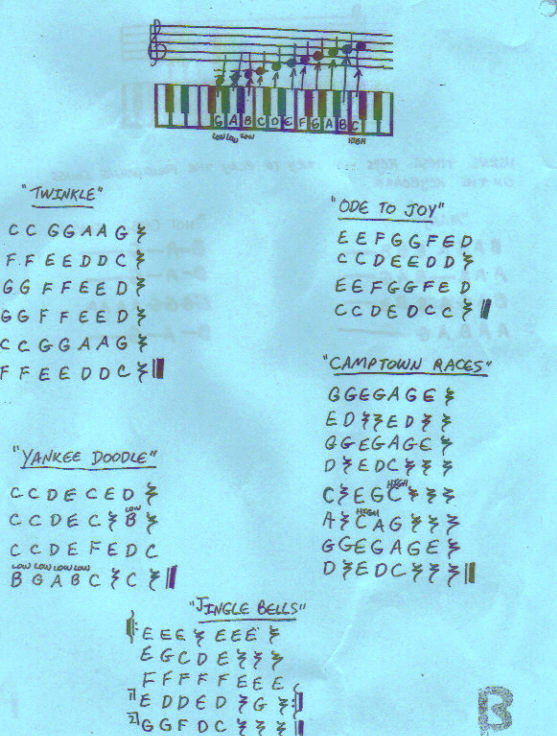 G A B C D E F G A B C
LOW LOW LOW HIGH
"TWINKLE"
C C G G A A G 𝄽
F F E E D D C 𝄽
G G F F E E D 𝄽
G G F F E E D 𝄽
C C G G A A G 𝄽
F F E E D D C 𝄽
"ODE TO JOY"
E E F G G F E D
C C D E E D D 𝄽
E E F G G F E D
C C D E D C C 𝄽
"CAMPTOWN RACES"
G G E G A G E 𝄽
E D 𝄽 𝄽 E D 𝄽 𝄽
G G E G A G E 𝄽
D 𝄽 E D C 𝄽 𝄽 𝄽
HIGH
C 𝄽 E G C 𝄽 𝄽 𝄽
HIGH
A 𝄽 C A G 𝄽 𝄽 𝄽
G G E G A G E 𝄽
D 𝄽 E D C 𝄽 𝄽 𝄽
"YANKEE DOODLE"
C C D E C E D 𝄽
LOW
C C D E C 𝄽 B 𝄽
C C D E F E D C
LOW LOW LOW LOW
B G A B C 𝄽 C 𝄽
"JINGLE BELLS"
E E E 𝄽 E E E 𝄽
E G C D E 𝄽 𝄽 𝄽
F F F F F E E E
1 E D D E D 𝄽 G 𝄽
2 G G F D C 𝄽 𝄽 𝄽
B